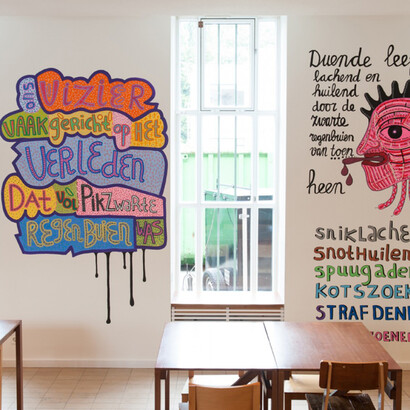 ons VIZIER
VAAK gericht op HET
VERLEDEN
DAT vol PikZwarte
REGENBUIEN WAS
Duende lee
lachend en
huilend
door de
zwarte
regenbuien
van toen
heen
sniklache
snothuilem
spuugade
KOTSZOE
STRAF DEN